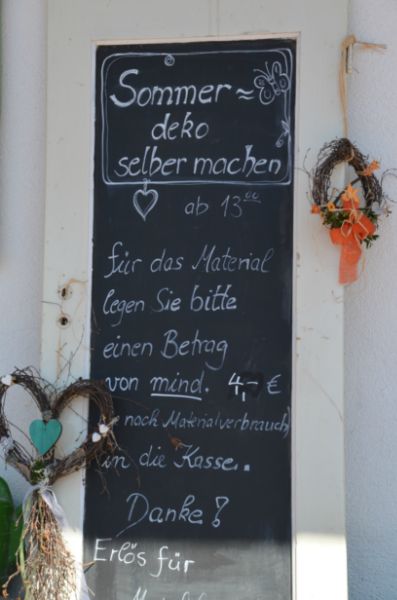 Sommer=
deko
selber machen
ab 13⁰⁰
für das Material
legen Sie bitte
einen Betrag
von mind. 4,- €
noch Materialverbrauch)
in die Kasse..
Danke!
Erlös für